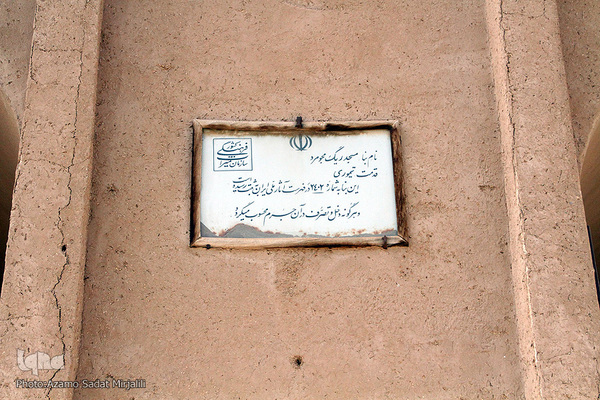 سازمان میراث فرهنگی کشور
نام بنا مسجد ریگ مجومرد
قدمت تیموری
این بنا به شماره ۲۴۰۲ در فهرست آثار ملی ایران به ثبت رسیده است
و هرگونه دخل و تصرف در آن جرم محسوب میگردد.
iqna
Photo:Azamo.Sadat Mirjalili